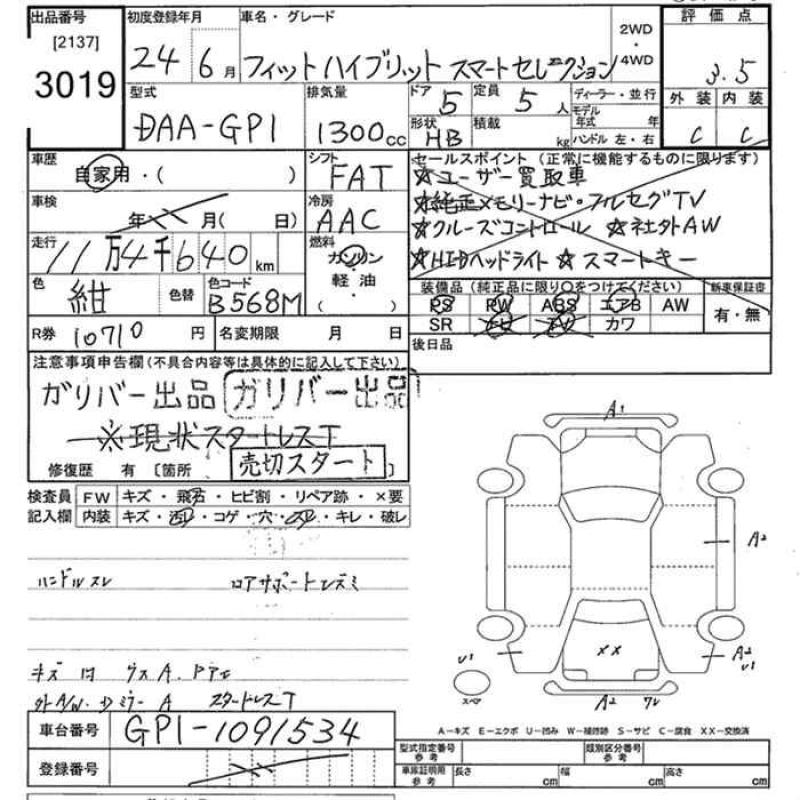 出品番号 初度登録年月 車名・グレード 2WD・4WD 評価点
[2137]
3019
24 6月 フィットハイブリット スマートセレクション
3.5
型式 排気量 ドア 定員 ディーラー・並行 外装 内装
DAA-GP1 1300cc 5 5人 モデル年式 年
形状 積載 ハンドル 左・右
HB kg C C
車歴 シフト セールスポイント (正常に機能するものに限ります)
自家用・( ) FAT ☆ユーザー買取車
車検 冷房 ☆純正メモリーナビ・フルセグTV
年 月( 日) AAC ☆クルーズコントロール ☆社外AW
走行 燃料 ☆HIDヘッドライト ☆スマートキー
11万4千640km ガソリン
軽油
( )
色 色替 色コード 装備品 (純正品に限り○をつけてください) 新車保証書
紺 B568M PS PW ABS エアB AW 有・無
SR カワ
R券 10710円 名変期限 月 日 後日品
注意事項申告欄 (不具合内容等は具体的に記入して下さい)
ガリバー出品 ガリバー出品
※現状スタートレスT
修復歴 有 [箇所 ]
売切スタート
検査員 FW キズ・飛石・ヒビ割・リペア跡・×要
記入欄 内装 キズ・汚レ・コゲ・穴・スレ・キレ・破レ
ハンドルスレ ロアサポートレズミ
外A/W スタートレスT
A1
A2
U1
A2
U1
XX
スペア
A2
A-キズ E-エクボ U-凹み W-補修跡 S-サビ C-腐食 XX-交換済
車台番号 GP1-1091534
登録番号
型式指定番号参考 類別区分番号参考
車庫証明用参考 長さ cm 幅 cm 高さ cm